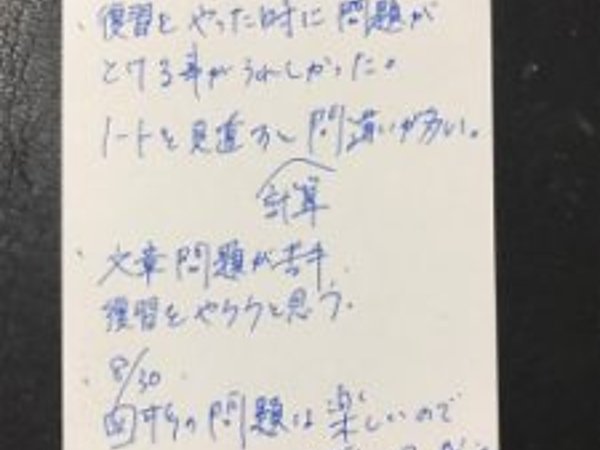 ・復習をやった時に問題が
とける事がうれしかった。
ノートを見直し問違いが多い。
計算
・文章問題が苦手
復習をやろうと思う。
・8/30
図形の問題は楽しいので